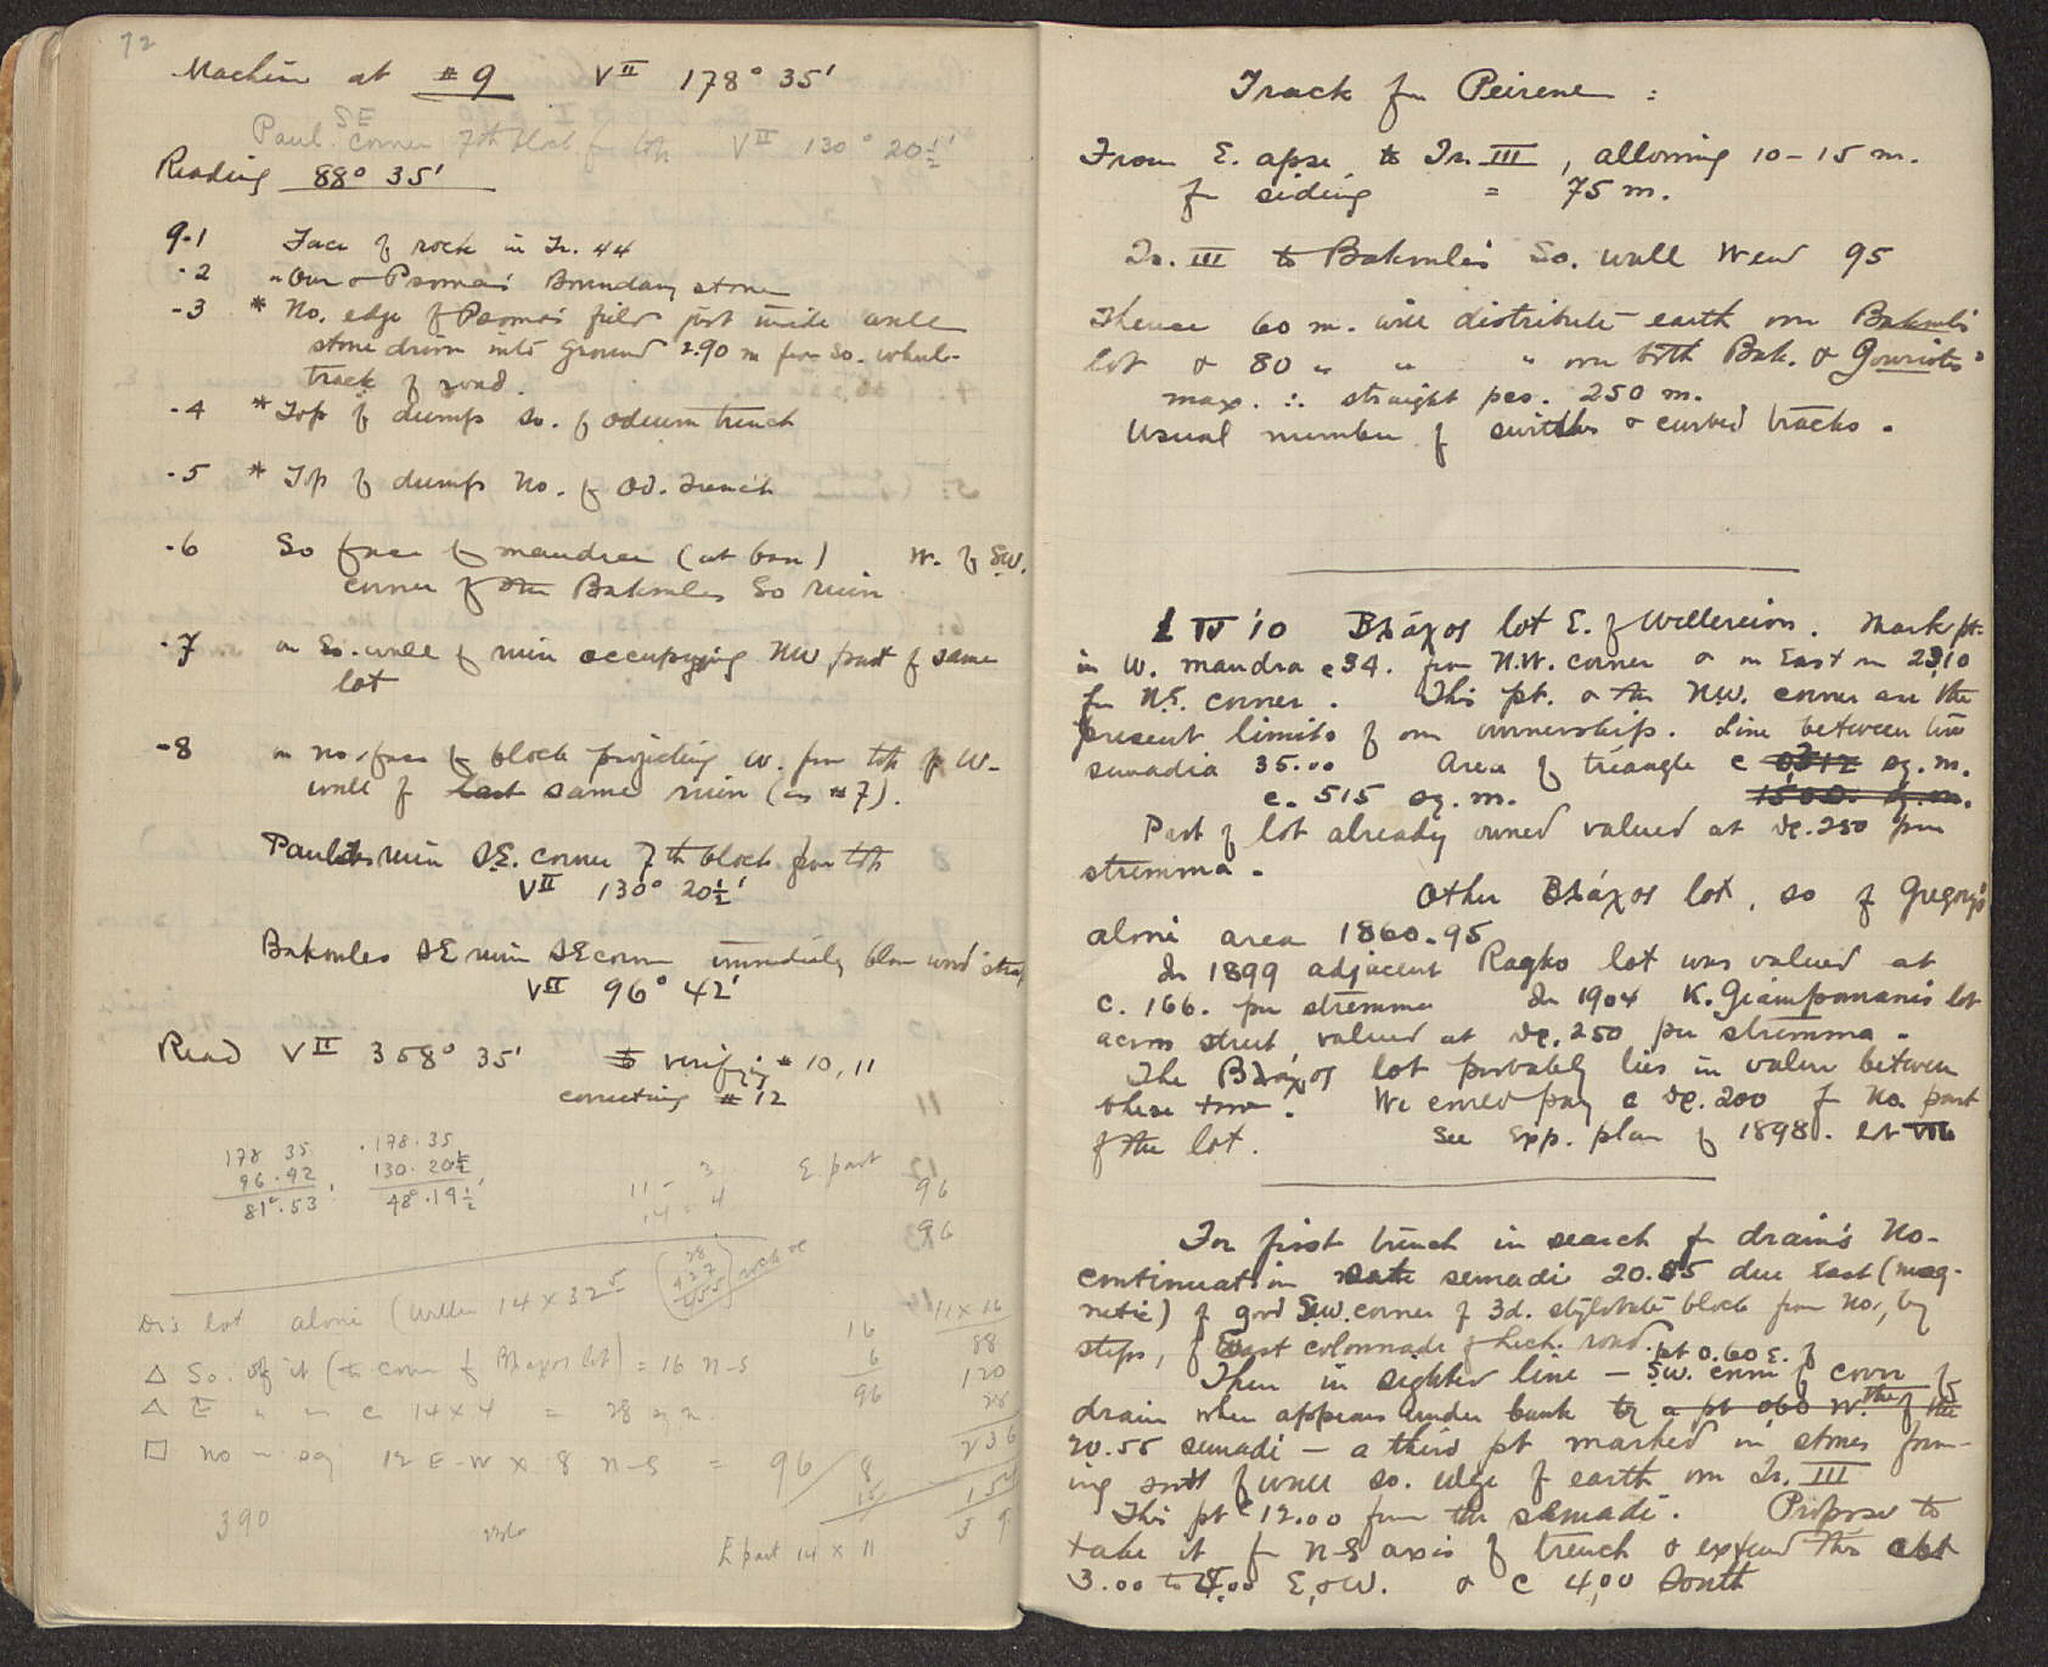 72
Machine at # 9 V II 178° 35'
Paul. SE corner 7th block from top V II 130° 20½'
Reading 88° 35'
9.1 Face of rock in Tr. 44
.2 " Our & Psoma's Boundary stone
-3 * No. edge of Psoma's field just inside wall
stone driven into ground 2.90 m from So. wheel-
track of road.
-4 * Top of dumps so. of odeum trench
.5 * Top of dumps No. of Od. Trench
.6 So face of mandra (at base) W. of SW.
corner of the Bakoules So ruin
.7 on So. wall of ruin occupying NW part of same
lot
-8 on no. face of block projecting W. from top of W-
wall of last same ruin (as #7).
ruin SE. corner 7th block from top
V II 130° 20½'
Bakoules SE ruin SE corner immediately
V II 96° 42'
Read V II 358° 35' to verifying # 10, 11
correcting # 12
178 35 . 178. 35
96. 42 130. 20½
81°. 53' 48°. 19½'
11 - 3
14 = 4
E. part
96
96
lot alone ( 14 x 32 5
11 x 16
16 88
△ So. of it (to corner of Βλάχος lot) = 16 N-S 6 120
△ E " " c 14 x 4 = 28 sq m. 96 28
236
□ No 12 E-W x 8 N-S = 96 8
390
E part 14 x 11
Track for Peirene :
From E. apse to Tr. III, allowing 10-15 m.
for siding = 75 m.
Tr. III to Bakoules So. wall W end 95
Thence 60 m. will distribute earth over Bakoules
lot & 80 " " " over both Bak. & Gouriotes
max. ∴ straight pcs. 250 m.
Usual number of switches & curved tracks.
1 IV '10 Βλάχος lot E. of Willersions. Mark pt.
in W. mandra c 34. from N.W. corner & on East on 23,10
from N.E. corner. This pt. & the N.W. corner are the
present limits of our ownership. Line between two
semadia 35.00 Area of triangle c 0312 sq. m.
c. 515 sq. m. 1500. sq. m.
Part of lot already owned valued at dr. 250 per
stremma.
Other Βλάχος lot, so of Gregory's
alone area 1860.95
In 1899 adjacent Ragko lot was valued at
c. 166. per stremma In 1904 K. Giamparanis lot
across street, valued at dr. 250 per stremma.
The Βλάχος lot probably lies in value between
these two. We could pay c dr. 200 for No. part
of the lot. See Exp. plan of 1898. lot
For first trench in search for drain's No-
continuation semadi 20.55 due East (mag-
netic) of good S.W. corner of 3d. stylobate block from No., by
steps, of East colonnade of Lech. road.
Then in sighted line - SW. corner of cover of
pt 0.60 E. of
drain when appears under bank by a pt 0,60 W. of the
the
20.55 semadi - a third pt marked in stones form-
ing south of wall so. edge of earth over Tr. III
This pt c 12.00 from the semadi. Propose to
take it for N-S axis of trench & extend this abt
3.00 to 4.00 E. & W. & c 4,00 South